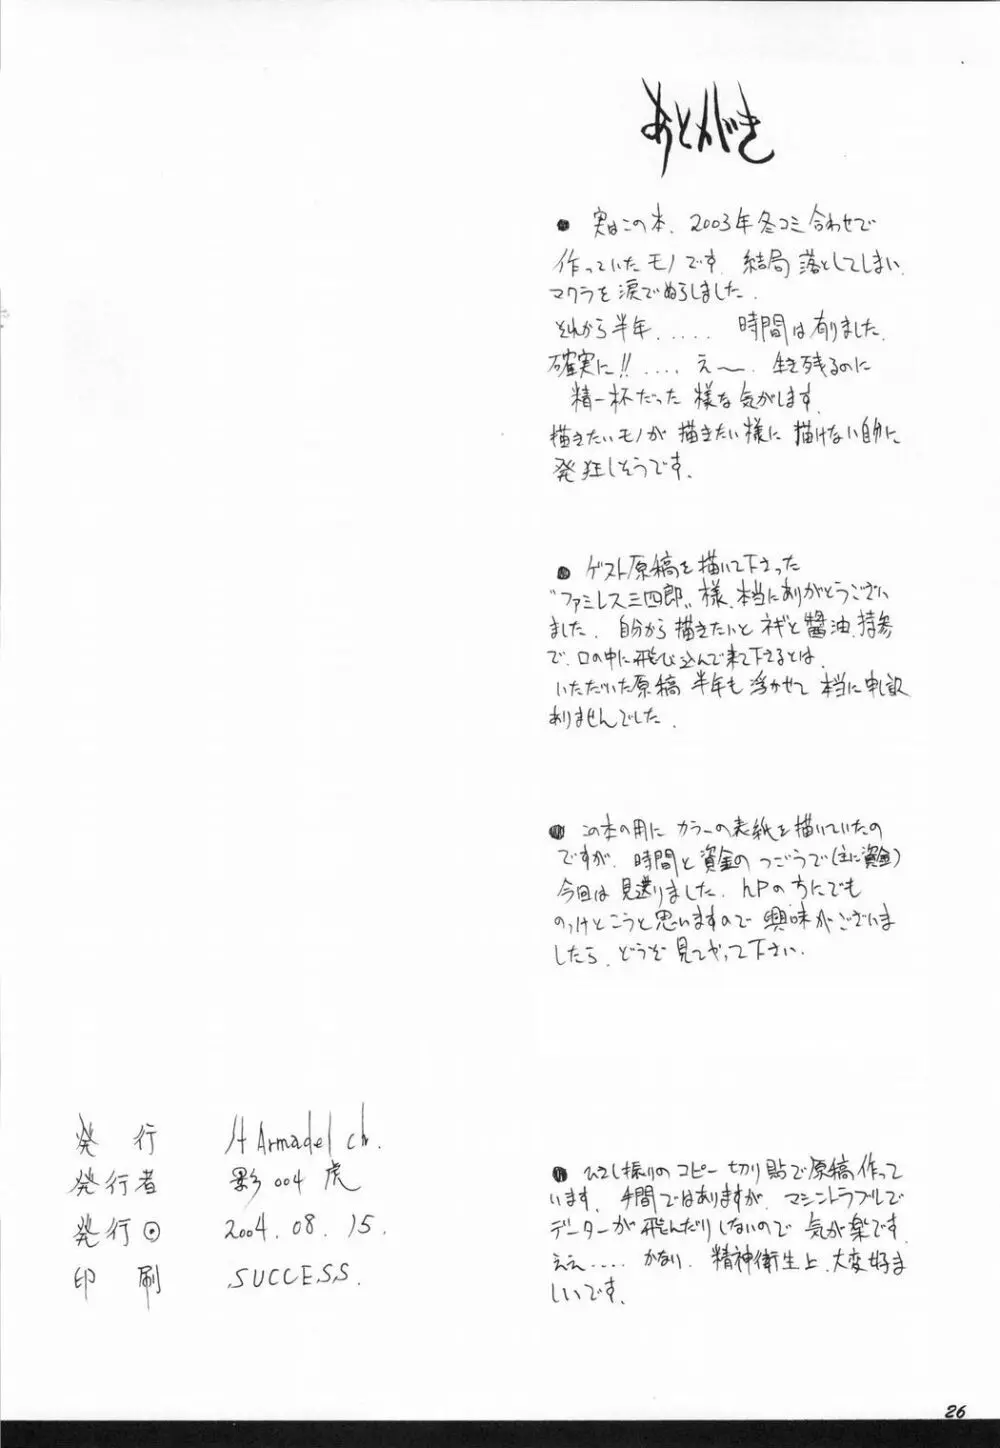 あとがき
● 実はこの本、2003年冬コミ合わせで
作っていたモノです。結局落としてしまい、
マクラを涙でぬらしました。
それから半年..... 時間は有りました。
確実に!! .... え〜、生き残るのに
精一杯だった様な気がします。
描きたいモノが描きたい様に描けない自分に
発狂しそうです。
● ゲスト原稿を描いて下さった
"ファミレス三四郎"様、本当にありがとうござい
ました。自分から描きたいとネギと醤油持参
で、口の中に飛び込んで来て下さるとは、
いただいた原稿半年も浮かせて本当に申し訳
ありませんでした。
● この本の用にカラーの表紙を描いていたの
ですが、時間と資金のつごうで(主に資金)
今回は見送りました。HPの方にでも
のっけとこうと思いますので興味がございま
したら、どうぞ見てやって下さい。
● ひさし振りのコピー切り貼で原稿作って
います。手間ではありますが、マシントラブルで
データーが飛んだりしないので気が楽です。
ええ.... かなり、精神衛生上、大変好ま
しいです。
発行 H Armadel ch.
発行者 影004虎
発行日 2004.08.15.
印刷 SUCCESS.
26